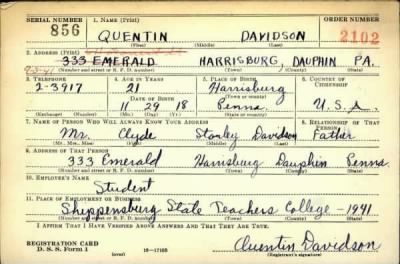 SERIAL NUMBER 1. NAME (Print) ORDER NUMBER
856 QUENTIN DAVIDSON 2102
(First) (Middle) (Last)
2. ADDRESS (Print)
333 EMERALD HARRISBURG, DAUPHIN PA.
(Number and street or R. F. D. number) (Town) (County) (State)
3. TELEPHONE 4. AGE IN YEARS 5. PLACE OF BIRTH 6. COUNTRY OF CITIZENSHIP
2-3917 21 Harrisburg
DATE OF BIRTH
11 29 18 Penna. U.S.A.
(Exchange) (Number) (Mo.) (Day) (Yr.) (State or country)
7. NAME OF PERSON WHO WILL ALWAYS KNOW YOUR ADDRESS 8. RELATIONSHIP OF THAT PERSON
Mr. Clyde Stanley Davidson Father
(Mr., Mrs., Miss) (First) (Middle) (Last)
9. ADDRESS OF THAT PERSON
333 Emerald Harrisburg Dauphin Penna.
(Number and street or R. F. D. number) (Town) (County) (State)
10. EMPLOYER'S NAME
Student
11. PLACE OF EMPLOYMENT OR BUSINESS
Shippensburg State Teachers College - 1941
(Number and street or R. F. D. number) (Town) (County) (State)
I AFFIRM THAT I HAVE VERIFIED ABOVE ANSWERS AND THAT THEY ARE TRUE.
REGISTRATION CARD
D. S. S. Form 1 16-17105 Quentin Davidson
(over) (Registrant's signature)